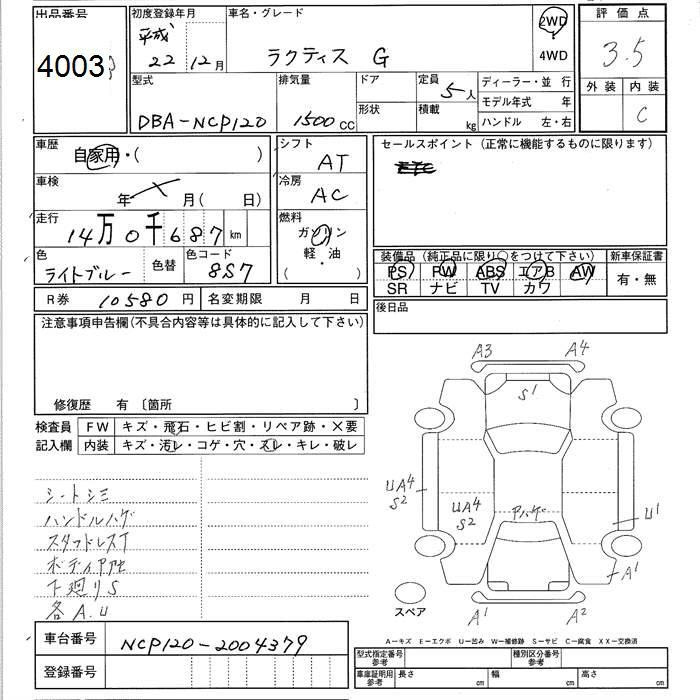 出品番号
4003
初度登録年月
平成
22 12月
車名・グレード
ラクティス G
2WD
4WD
評価点
3.5
外装 内装
C
型式
DBA-NCP120
排気量
1500 CC
ドア
形状
定員
5人
積載
kg
ディーラー・並 行
モデル年式 年
ハンドル 左・右
車歴
自家用・( )
車検
年 月( 日)
走行
14万0千687 km
色
ライトブルー
色替
色コード
8S7
シフト
AT
冷房
AC
燃料
ガソリン
軽・油
( )
セールスポイント (正常に機能するものに限ります)
装備品 (純正品に限り○をつけて下さい)
PS PW ABS エアB AW
SR ナビ TV カワ
新車保証書
有・無
R券 10580円
名変期限 月 日
後日品
注意事項申告欄(不具合内容等は具体的に記入して下さい)
修復歴 有 〔箇所 〕
検査員
記入欄
FW キズ・飛石・ヒビ割・リペア跡・×要
内装 キズ・汚レ・コゲ・穴・スレ・キレ・破レ
シートシミ
ハンドルハゲ
スタッドレスT
下廻りS
各A.U
A3 A4
S1
UA4
S2
UA4
S2
アハゲ
U1
A1
スペア
A1 A2
A-キズ E-エクボ U-凹み W-補修跡 S-サビ C-腐食 XX-交換済
車台番号
NCP120-2004379
登録番号
型式指定番号
参考
種別区分番号
参考
車庫証明用
参考
長さ cm
幅 cm
高さ cm